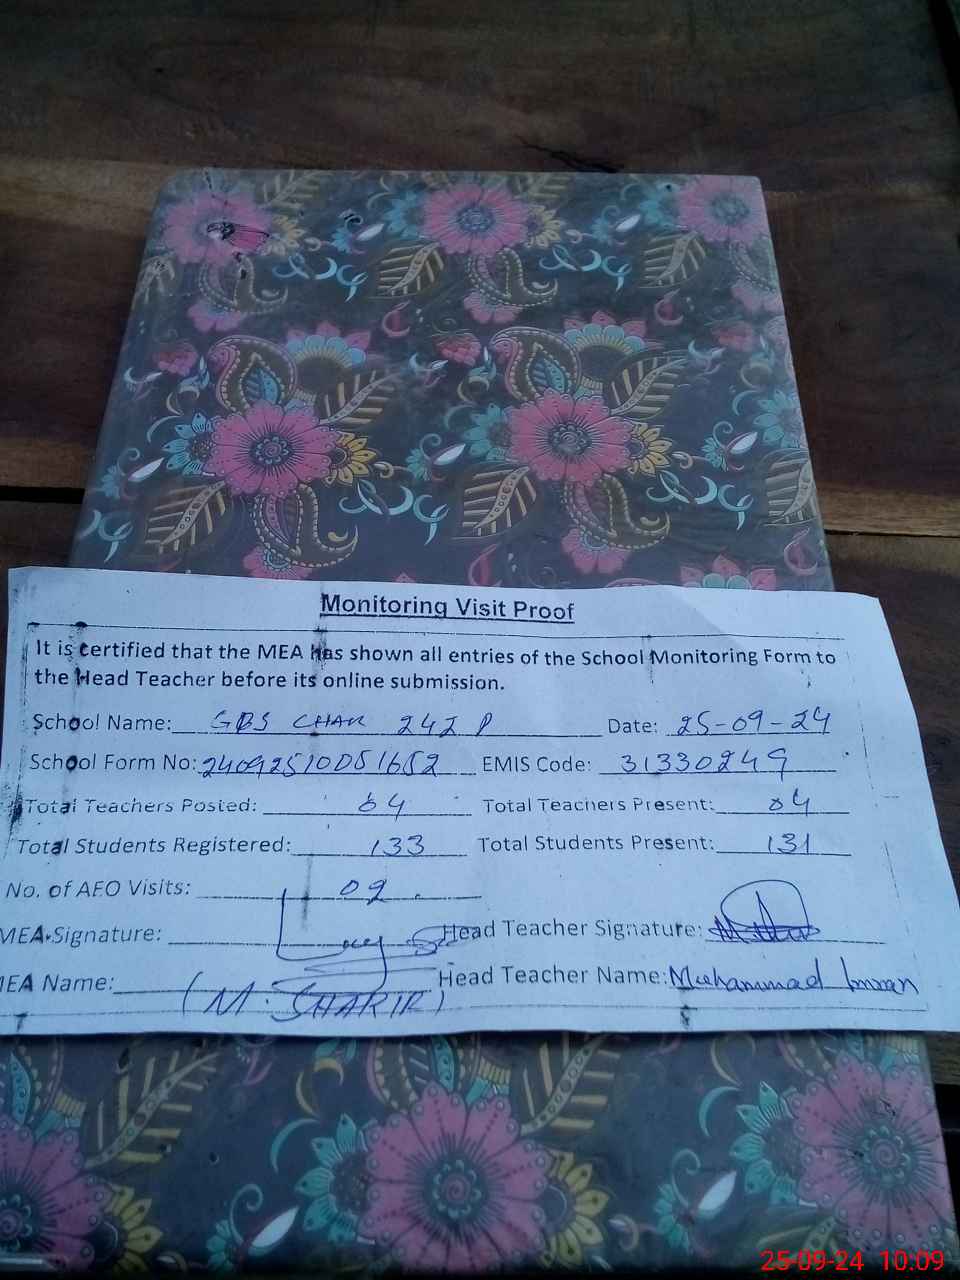 Monitoring Visit Proof
It is certified that the MEA has shown all entries of the School Monitoring Form to
the Head Teacher before its online submission.
School Name: GBS CHAK 242 P Date: 25-09-24
School Form No: EMIS Code: 31330249
Total Teachers Posted: 04 Total Teachers Present: 04
Total Students Registered: 133 Total Students Present: 131
No. of AEO Visits: 02
MEA Signature: Head Teacher Signature:
MEA Name: Head Teacher Name: Muhammad Imran
(M. SHAKIR)
25-09-24 10:09